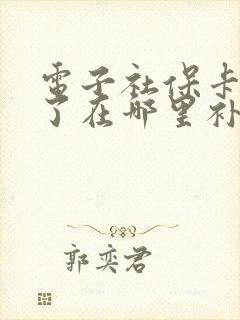 電子社保卡
了在哪里补
郭奕君